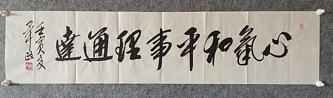 心氣和平事理通達
壬寅夏